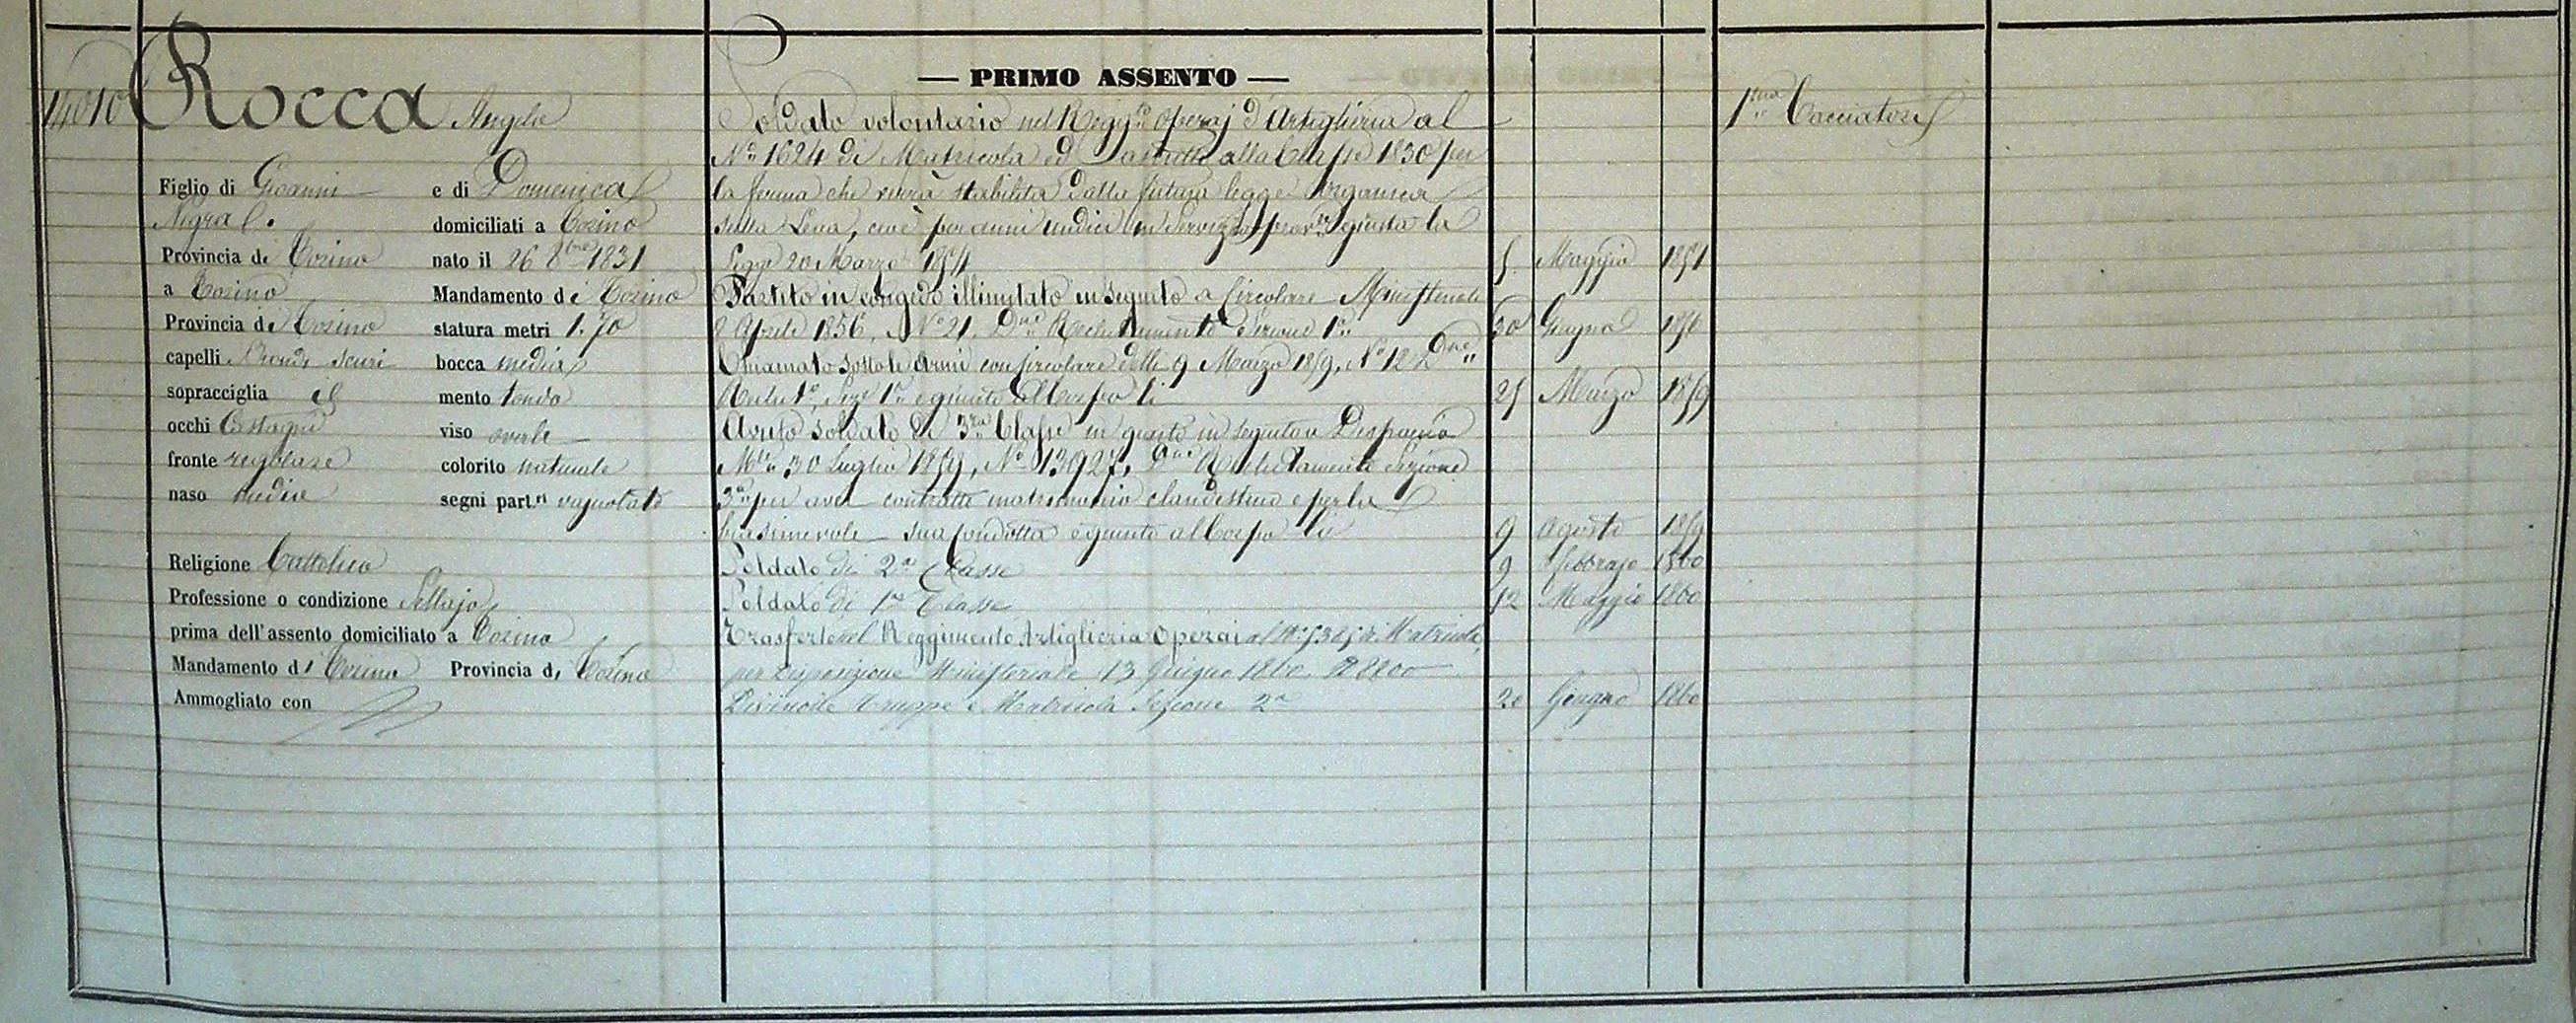 14010 Rocca Angelo
Figlio di Giovanni e di Domenica
Negra domiciliati a Torino
Provincia di Torino nato il 26 8bre 1831
a Torino Mandamento di Torino
Provincia di Torino statura metri 1.70
capelli Biondi scuri bocca media
sopracciglia id mento tondo
occhi Castagni viso ovale
fronte regolare colorito naturale
naso medio segni part.ri vajuolato
Religione Cattolica
Professione o condizione Sellajo
prima dell'assento domiciliato a Torino
Mandamento di Torino Provincia di Torino
Ammogliato con
— PRIMO ASSENTO —
Soldato volontario nel Reggto Operaj d'Artiglieria al
No 1624 di Matricola ed ascritto alla Classe 1830 per
la ferma che verrà stabilita dalla futura legge Organica
sulla Leva, cioè per anni undici in Servizio provle giusta la
Legge 20 Marzo 1854 5 Maggio 1851
Partito in congedo illimitato in seguito a Circolare Ministeriale
2 Aprile 1856, No 21, Dne Reclutamento Sezione 1a 30 Giugno 1856
Chiamato sotto le Armi con circolare delli 9 Marzo 1859, No 12 Dne
Reclutto, Seze 1a e giunto al Corpo li 25 Marzo 1859
Avuto soldato di 3za Classe in quanto in seguito a Dispaccio
Mle 30 Luglio 1859, No 13927, Dne Reclutamento Sezione
3a per aver contratto matrimonio clandestino e per la
biasimevole sua condotta e giunto al Corpo li 9 Agosto 1859
Soldato di 2a Classe 9 febbrajo 1860
Soldato di 1a Classe 12 Maggio 1860
Trasferto nel Reggimento Artiglieria Operai al No 5385 di Matricola
per disposizione Ministeriale 13 Giugno 1860 N 8800
Divisione Truppe e Matricola Sezione 2a 20 Giugno 1860
1ma Cacciatori